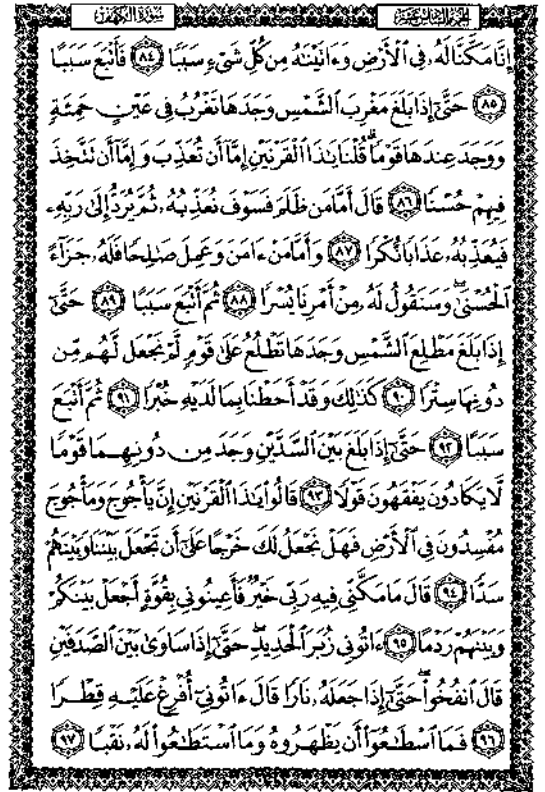 الجزء السادس عشر سورة الكهف
إِنَّا مَكَّنَّا لَهُۥ فِى ٱلْأَرْضِ وَءَاتَيْنَٰهُ مِن كُلِّ شَىْءٍ سَبَبًا ٨٤ فَأَتْبَعَ سَبَبًا
٨٥ حَتَّىٰٓ إِذَا بَلَغَ مَغْرِبَ ٱلشَّمْسِ وَجَدَهَا تَغْرُبُ فِى عَيْنٍ حَمِئَةٍ
وَوَجَدَ عِندَهَا قَوْمًا ۗ قُلْنَا يَٰذَا ٱلْقَرْنَيْنِ إِمَّآ أَن تُعَذِّبَ وَإِمَّآ أَن تَتَّخِذَ
فِيهِمْ حُسْنًا ٨٦ قَالَ أَمَّا مَن ظَلَمَ فَسَوْفَ نُعَذِّبُهُۥ ثُمَّ يُرَدُّ إِلَىٰ رَبِّهِۦ
فَيُعَذِّبُهُۥ عَذَابًا نُّكْرًا ٨٧ وَأَمَّا مَنْ ءَامَنَ وَعَمِلَ صَٰلِحًا فَلَهُۥ جَزَآءً
ٱلْحُسْنَىٰ ۖ وَسَنَقُولُ لَهُۥ مِنْ أَمْرِنَا يُسْرًا ٨٨ ثُمَّ أَتْبَعَ سَبَبًا ٨٩ حَتَّىٰٓ
إِذَا بَلَغَ مَطْلِعَ ٱلشَّمْسِ وَجَدَهَا تَطْلُعُ عَلَىٰ قَوْمٍ لَّمْ نَجْعَل لَّهُم مِّن
دُونِهَا سِتْرًا ٩٠ كَذَٰلِكَ وَقَدْ أَحَطْنَا بِمَا لَدَيْهِ خُبْرًا ٩١ ثُمَّ أَتْبَعَ
سَبَبًا ٩٢ حَتَّىٰٓ إِذَا بَلَغَ بَيْنَ ٱلسَّدَّيْنِ وَجَدَ مِن دُونِهِمَا قَوْمًا
لَّا يَكَادُونَ يَفْقَهُونَ قَوْلًا ٩٣ قَالُوا۟ يَٰذَا ٱلْقَرْنَيْنِ إِنَّ يَأْجُوجَ وَمَأْجُوجَ
مُفْسِدُونَ فِى ٱلْأَرْضِ فَهَلْ نَجْعَلُ لَكَ خَرْجًا عَلَىٰٓ أَن تَجْعَلَ بَيْنَنَا وَبَيْنَهُمْ
سَدًّا ٩٤ قَالَ مَا مَكَّنِّى فِيهِ رَبِّى خَيْرٌ فَأَعِينُونِى بِقُوَّةٍ أَجْعَلْ بَيْنَكُمْ
وَبَيْنَهُمْ رَدْمًا ٩٥ ءَاتُونِى زُبَرَ ٱلْحَدِيدِ ۖ حَتَّىٰٓ إِذَا سَاوَىٰ بَيْنَ ٱلصَّدَفَيْنِ
قَالَ ٱنفُخُوا۟ ۖ حَتَّىٰٓ إِذَا جَعَلَهُۥ نَارًا قَالَ ءَاتُونِىٓ أُفْرِغْ عَلَيْهِ قِطْرًا
٩٦ فَمَا ٱسْطَٰعُوٓا۟ أَن يَظْهَرُوهُ وَمَا ٱسْتَطَٰعُوا۟ لَهُۥ نَقْبًا ٩٧